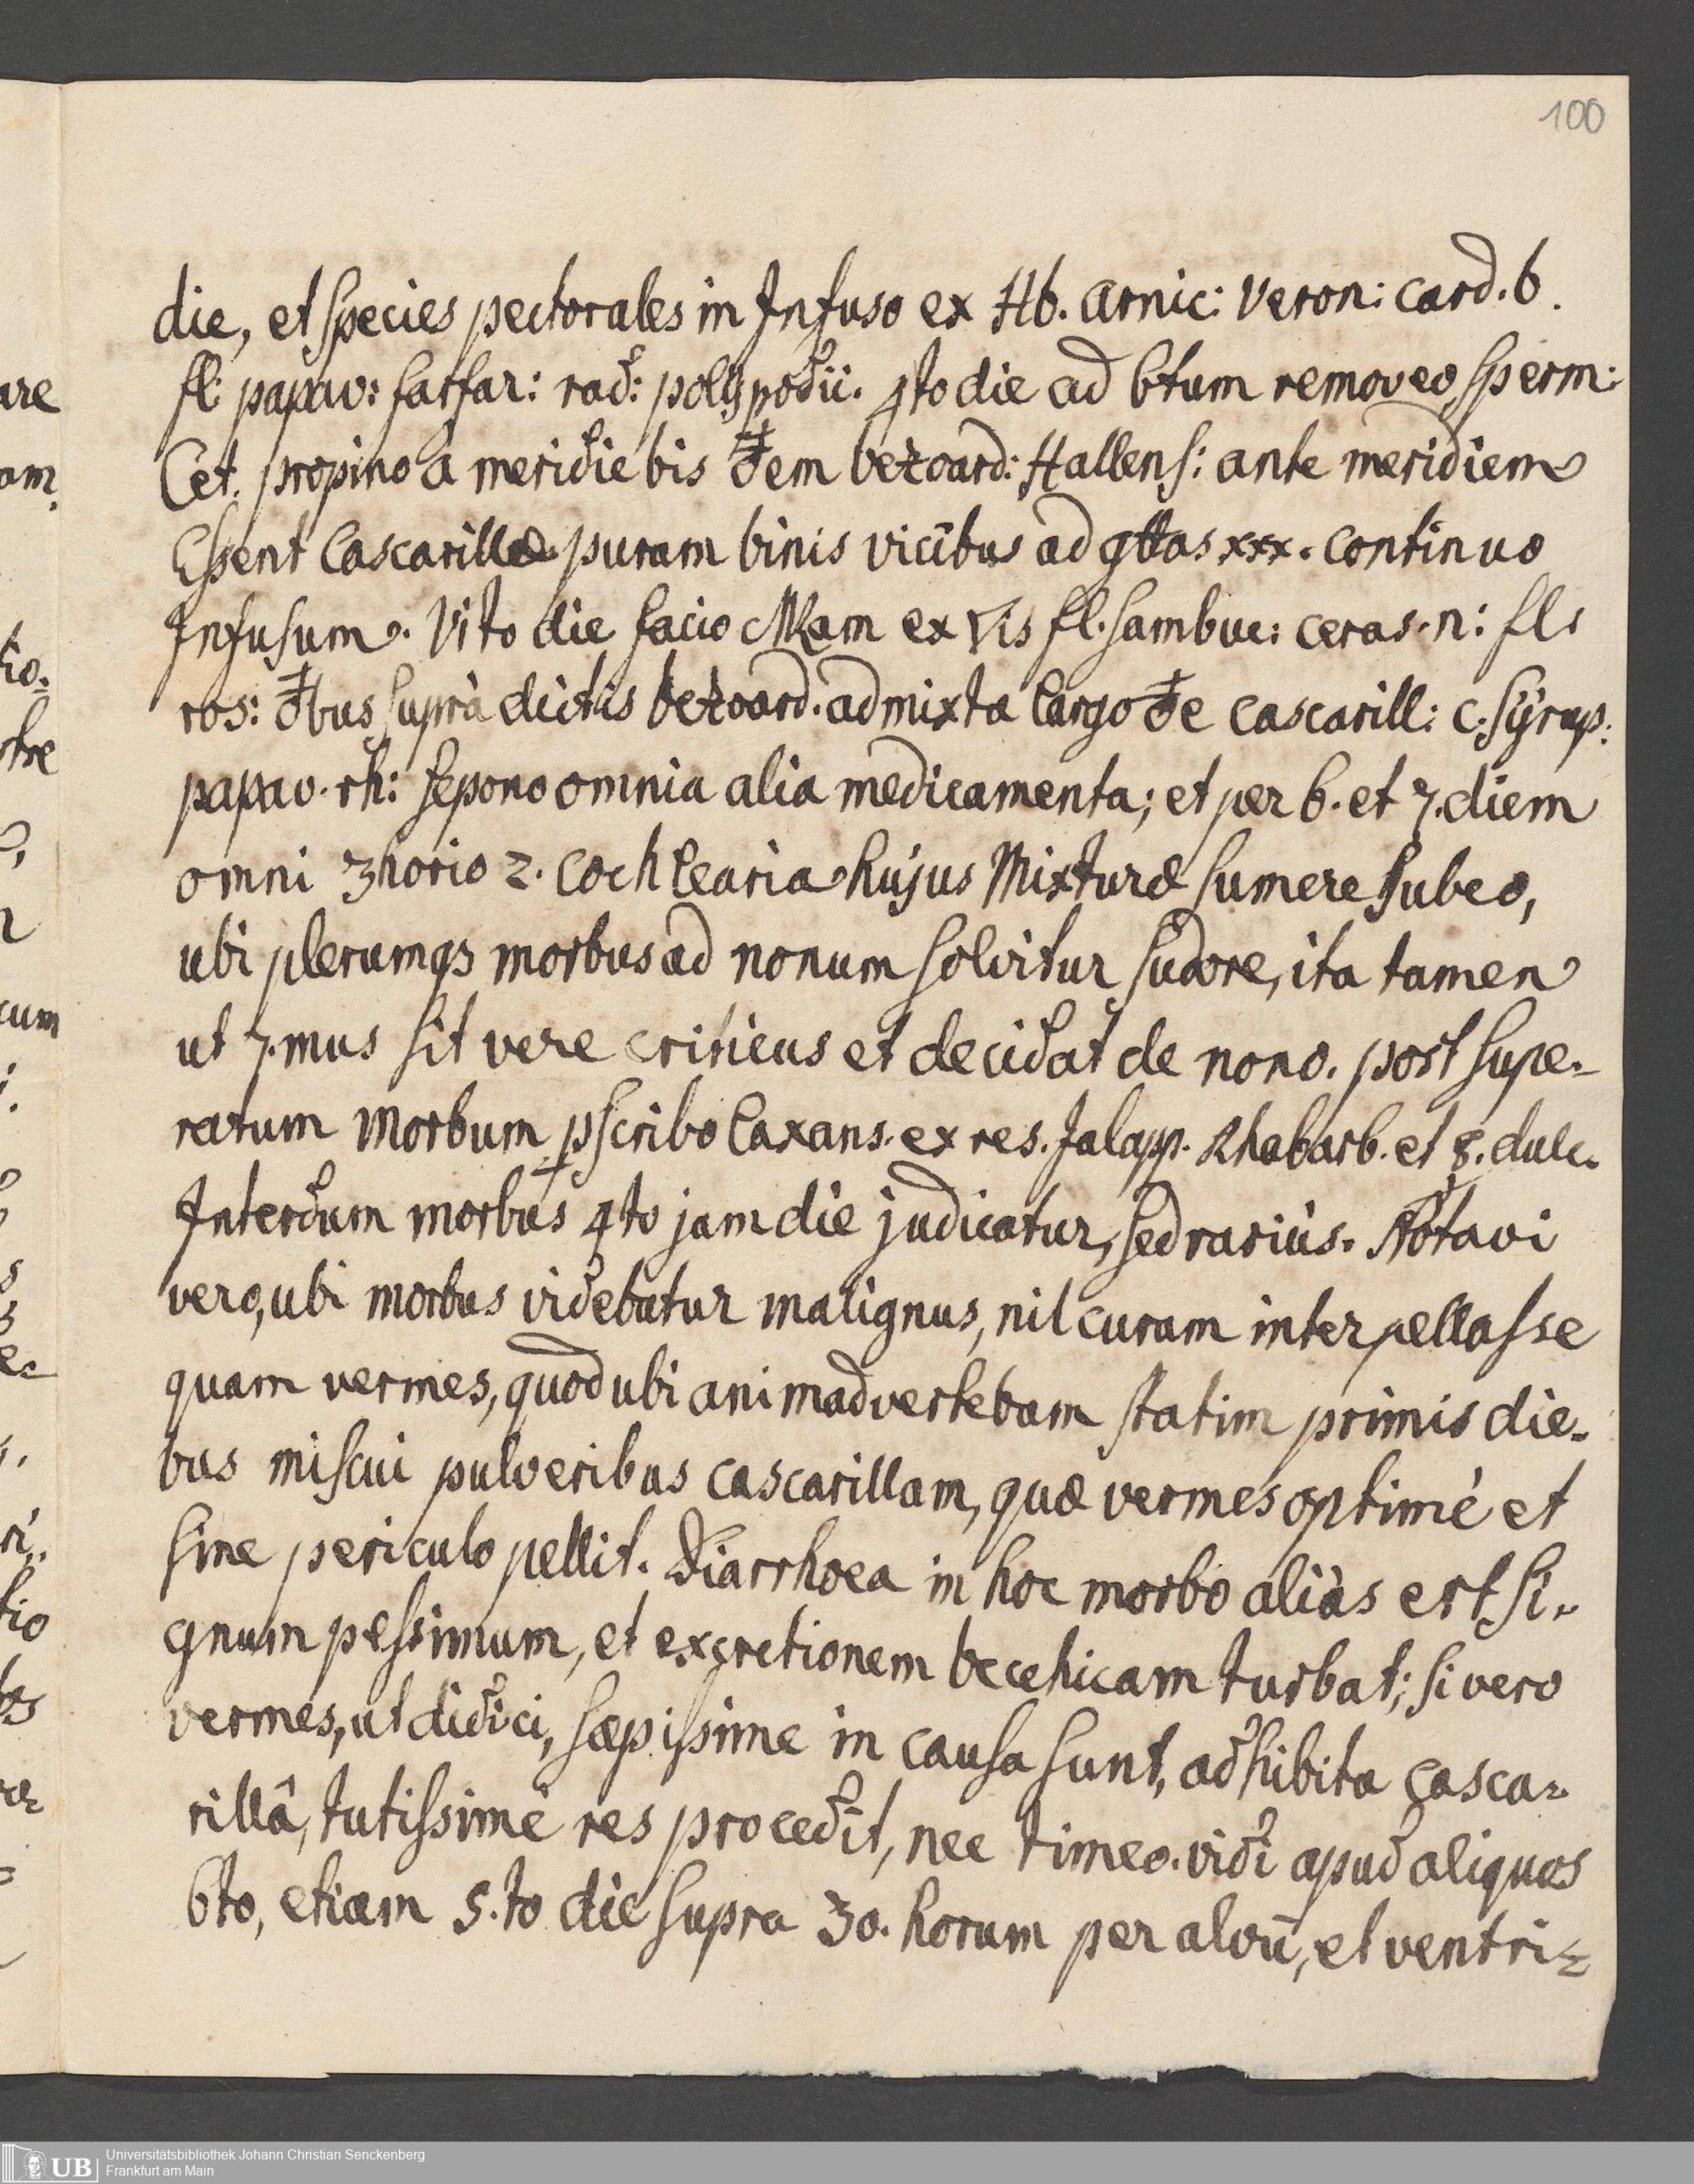 100
die, et species pectorales in Infuso ex Hb. Arnic: Veron: card. b.
fl: papav: farfar: rad: polypodii. 4to die ad 6tum removeo sperm:
Cet. propino à meridie bis ♁em bezoard: Hallens: ante meridiem
Essent Cascarillæ puram binis vicibus ad gttas xxx. continuo
Infusum. VIto die facio MRam ex ▽is fl. sambuc: ceras. n: fl:
ros: ♁bus suprà dictis bezoard. admixta largo ♁e cascarill: c. syrup:
papav. rh: sepono omnia alia medicamenta; et per 6. et 7. diem
omni 3horio 2. cochlearia hujus Mixturæ sumere jubeo,
ubi plerumq3 morbus ad nonum solvitur sudore, ita tamen
ut 7.mus sit vere criticus et decidat de nono. post supe-
ratum Morbum pscribo laxans. ex res. Jalapp. Rhabarb. et ☿. dulc.
Interdum morbus 4to jam die judicatur, sed rariùs. Notavi
vero, ubi morbus videbatur malignus, nil curam interpellasse
quam vermes, quod ubi animadvertebam statim primis die-
bus miscui pulveribus cascarillam, quæ vermes optimè et
sine periculo pellit. Diarrhoea in hoc morbo aliàs est si-
gnum pessimum, et excretionem bechicam turbat; si vero
vermes, ut didici, sæpissime in causa sunt, adhibita casca-
rillâ, tutissimè res procedit, nec timeo. vidi apud aliquos
6to, etiam 5.to die supra 30. horum per alvū, et ventri-
Universitätsbibliothek Johann Christian Senckenberg
Frankfurt am Main
UB